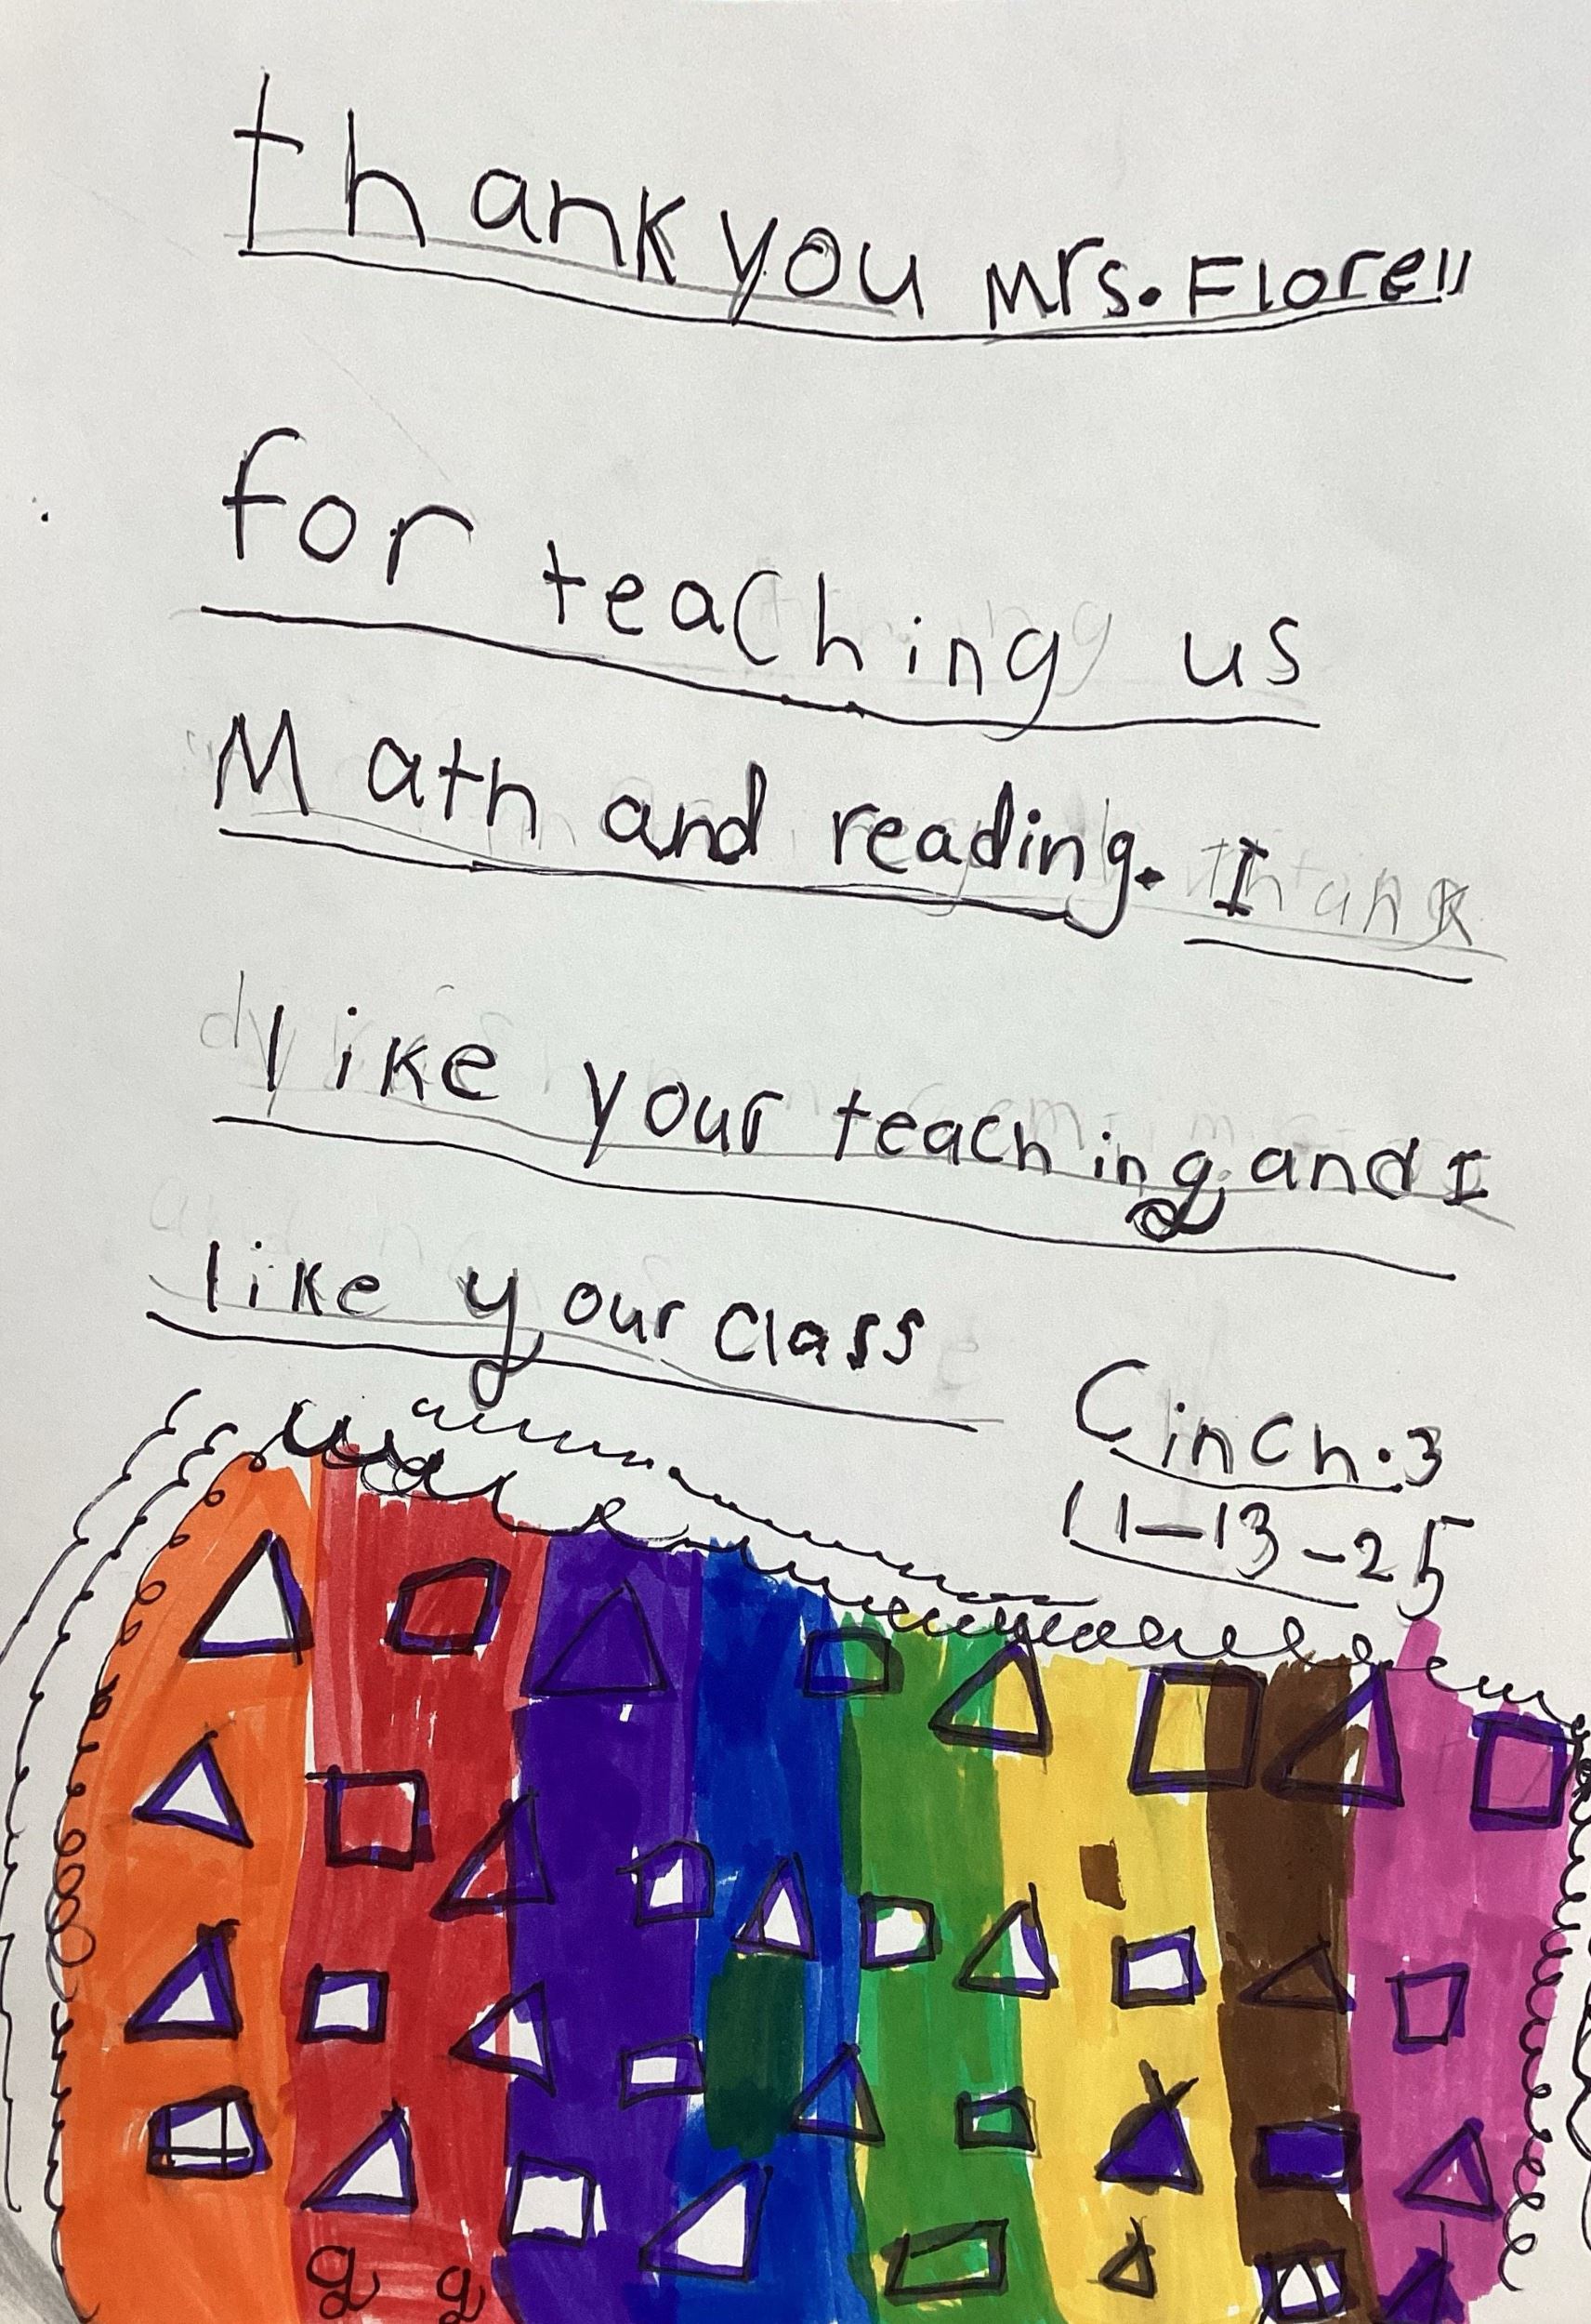 thank you Mrs. Florell
for teaching us
Math and reading. I
like your teaching and I
like your class
Cinch.3
11-13-25
g g